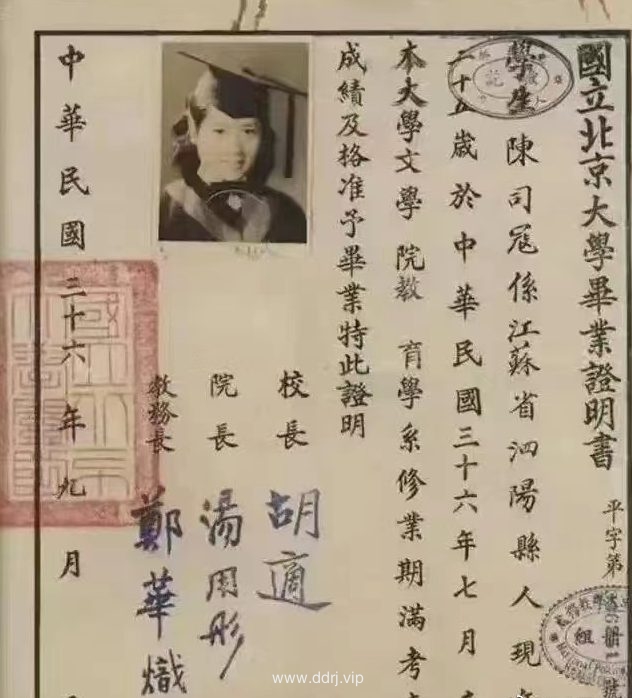 國立北京大學畢業證明書
平字第
學生陳司寇係江蘇省泗陽縣人現
二十五歲於中華民國三十六年七月
本大學文學院教育學系修業期滿考
成績及格准予畢業特此證明
校長 胡適
院長 湯用彤
教務長 鄭華熾
中華民國三十六年九月
www.ddrj.vip